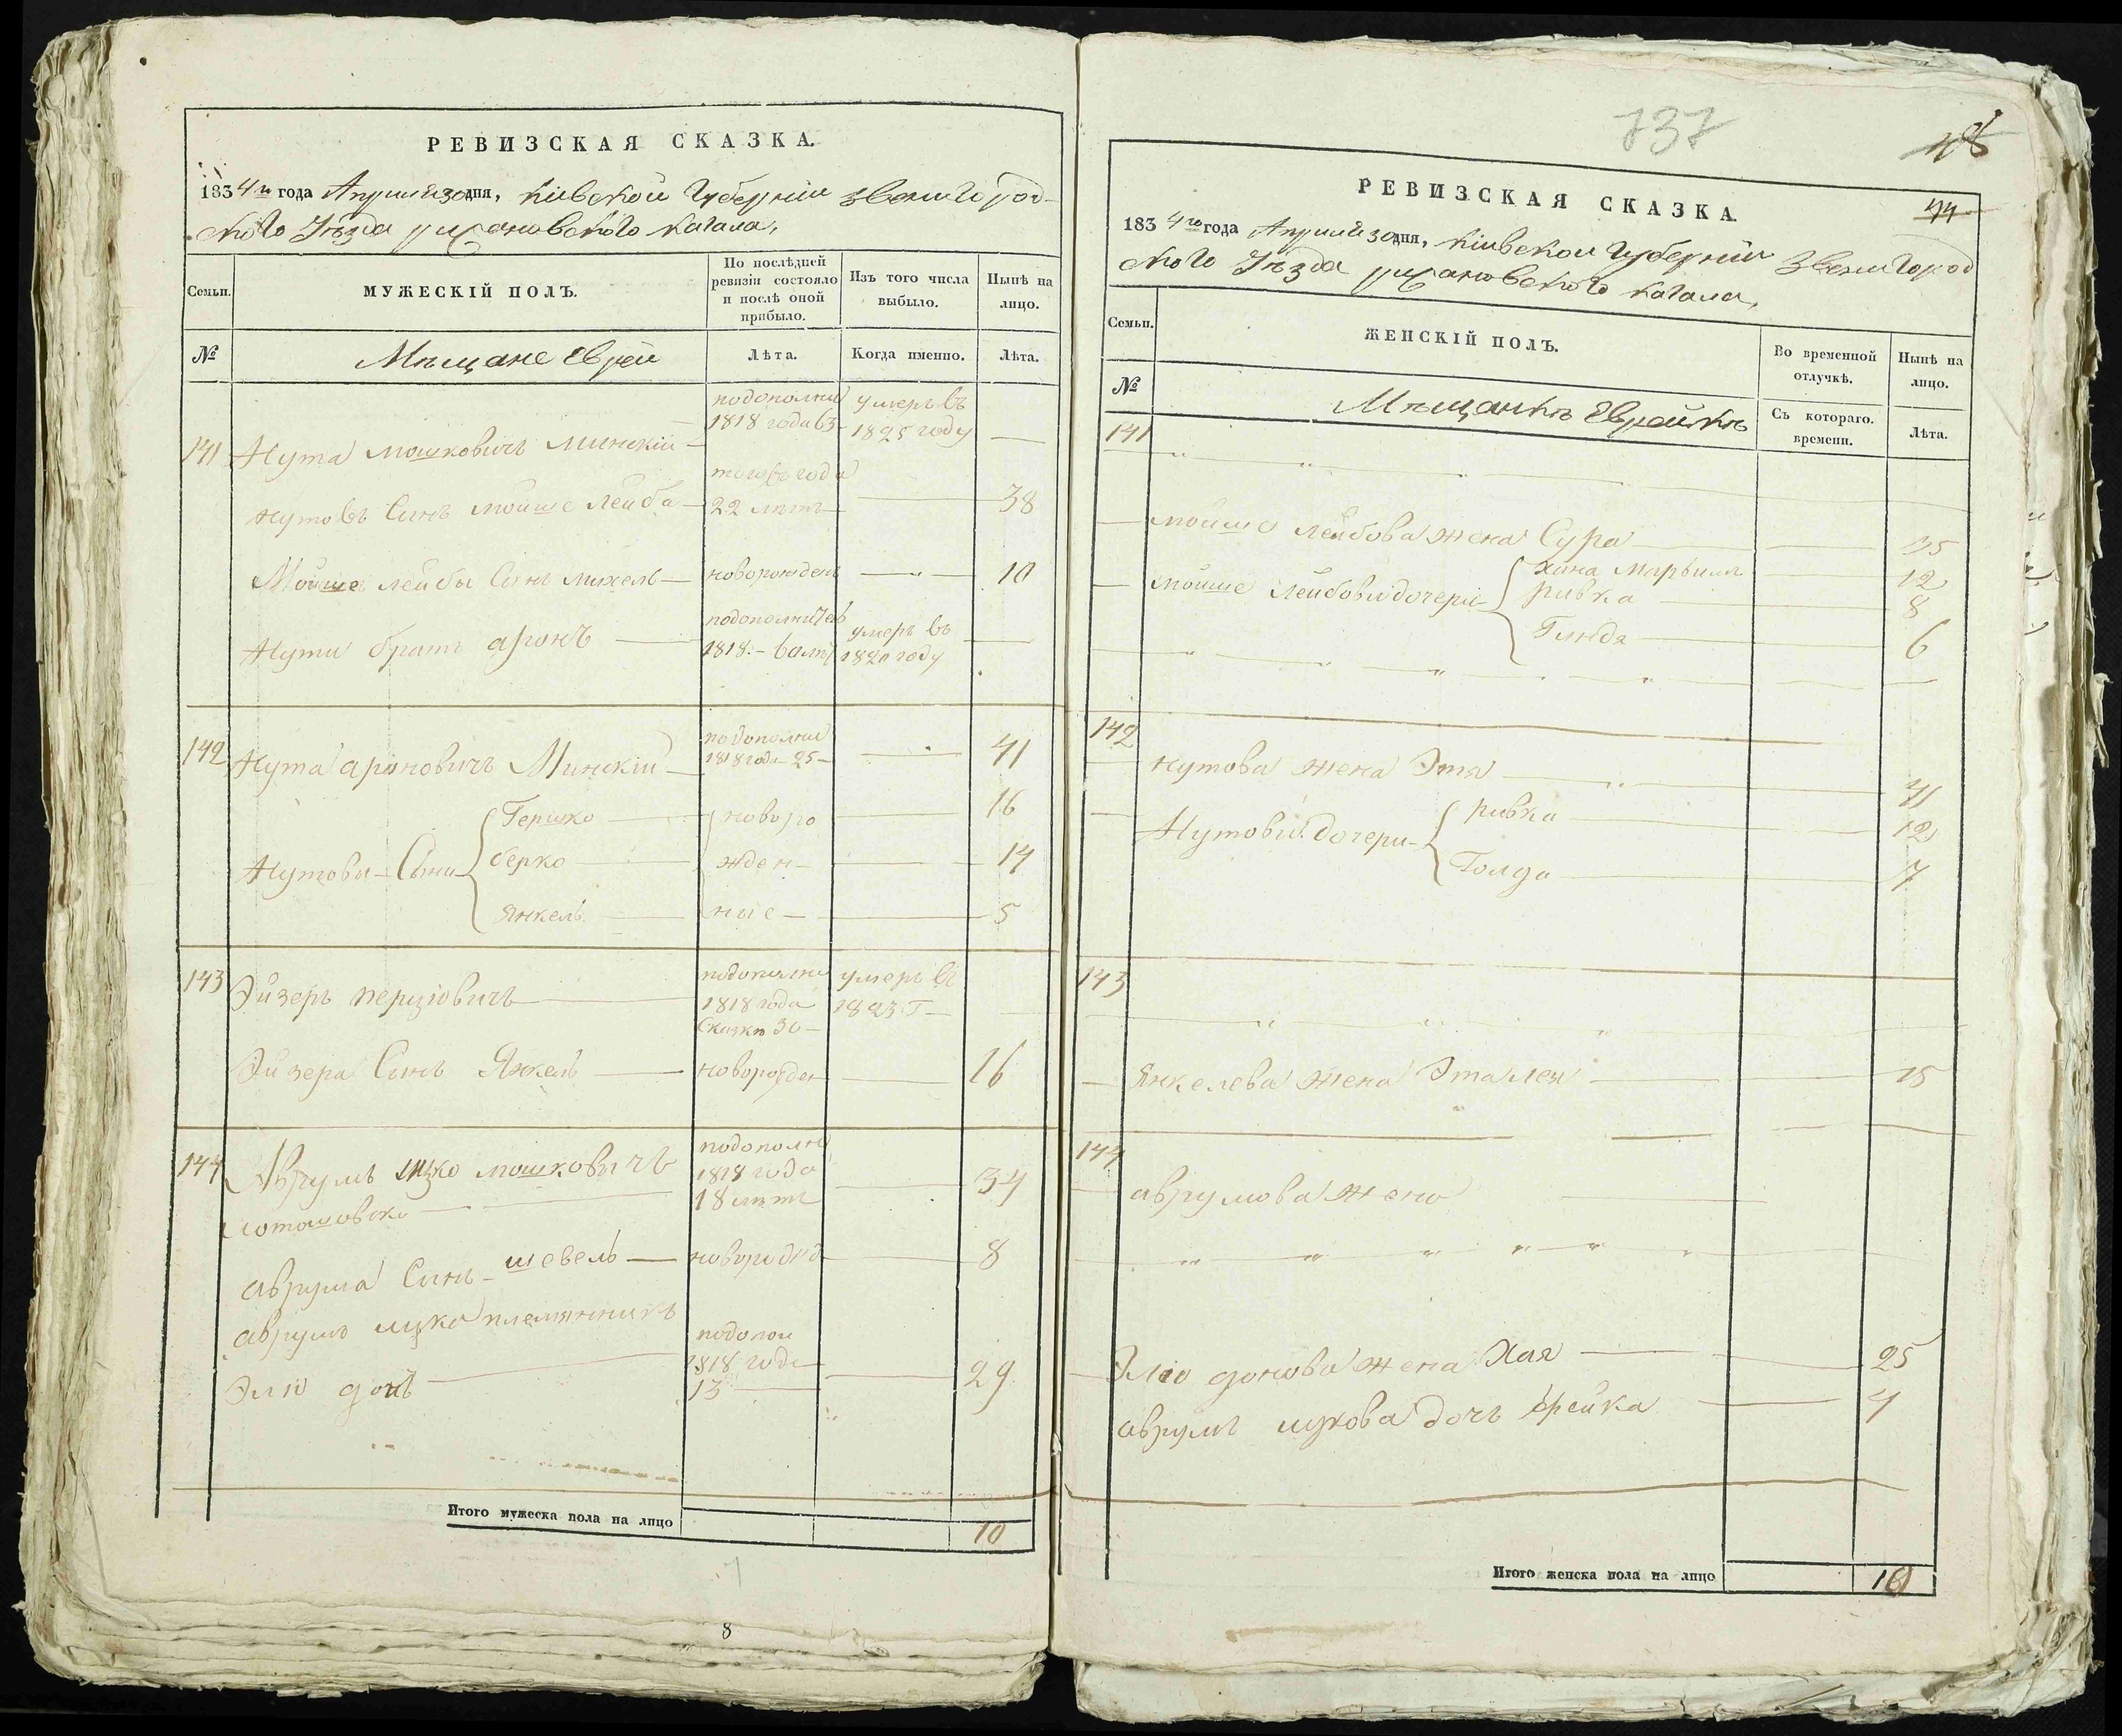 РЕВИЗСКАЯ СКАЗКА.
1834го года Апреля 30 дня, Кіевской Губерніи Звенигород-
ского Уезда рижановского кагала,
Семьи. МУЖЕСКІЙ ПОЛЪ. По послѣдней ревизіи состояло и послѣ оной прибыло. Изъ того числа выбыло. Нынѣ на лицо.
№ Мѣщане Евреи Лѣта. Когда именно. Лѣта.
141 Нута мошковичъ Минскій подополни 1818 года 63 умеръ въ 1825 году —
Нутовъ Синъ мойше Лейба 22 лѣтъ — 38
Мойше Лейбы Синъ михель новорожден — 10
Нути братъ аронъ 1818 умеръ въ году —
142 Нута ароновичъ Минский подополни 1818 года 25 — 41
Нутовы Сыни
Гершко 16
берко 14
янкель 5
новоро
жден
ные
143 Эйзеръ перціовичъ подополни 1818 года Сказки 30 умеръ въ 1823 Г
Эйзера Синъ Янкель новорожден — 16
144 Аврумъ ицко мошковичъ подополни 1818 года 18 лѣтъ — 34
аврума Синъ шевель 8
аврумъ ицко племянникъ
Элю 1818 года 13 — 29
Итого мужеска пола на лицо 10
8
737
48
44
РЕВИЗСКАЯ СКАЗКА.
1834го года Апреля 30 дня, Кіевской Губерніи Звенигород
ского Уезда рижановского кагала,
Семьи. ЖЕНСКІЙ ПОЛЪ. Во временной отлучкѣ. Нынѣ на лицо.
№ Мѣщанкѣ Еврейкѣ Съ котораго. времени. Лѣта.
141
мойше Лейбова жена Сура 35
мойше Лейбови дочери
12
ривка 8
6
142
нутова жена Этя 41
Нутови дочери
ривка 12
Голда 7
143
Янкелева жена Эталея 15
144
аврумова жена
Элю жена Хая 25
аврумъ ицкова дочь фрейка 4
Итого женска пола на лицо 10